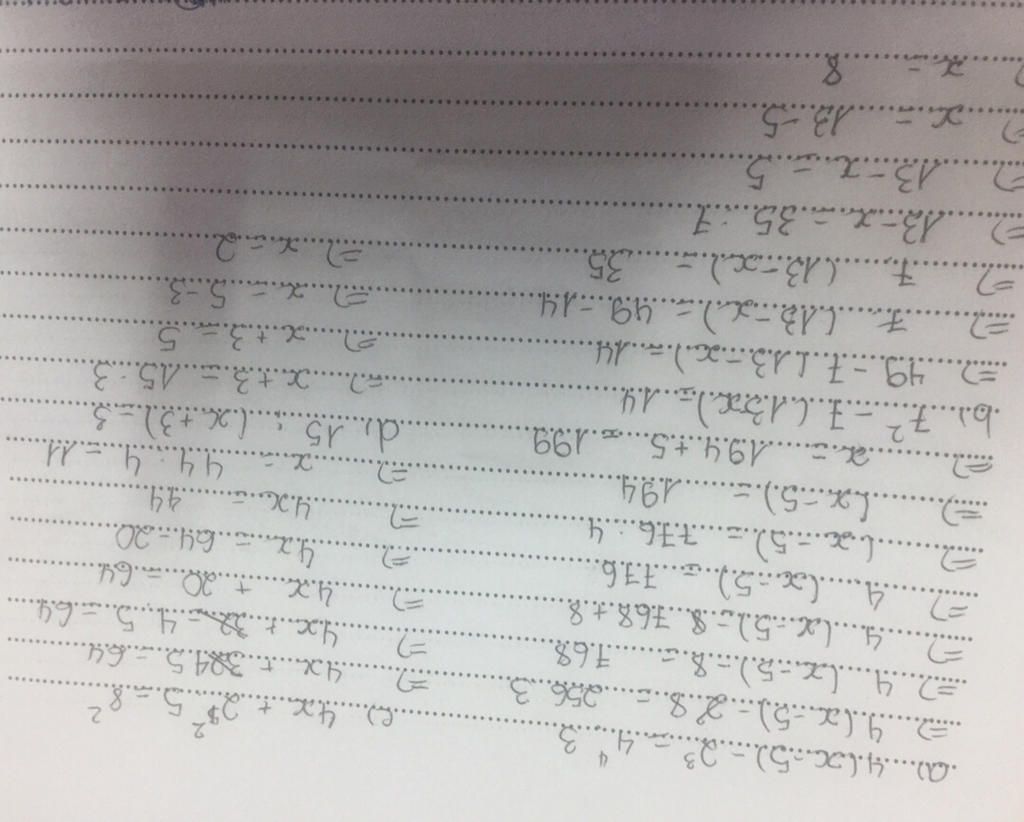 a) 4.(x-5) - 2³ = 4⁴.3
=> 4(x-5) - 8 = 256.3
=> 4(x-5) - 8 = 768
=> 4(x-5) = 768+8
=> 4(x-5) = 776
=> (x-5) = 776:4
=> (x-5) = 194
=> x = 194+5 = 199
b) 7² - 7(13x) = 14
=> 49-7.(13-x) = 14
=> 7(13-x) = 49-14
=> 7.(13-x) = 35
=> 13-x = 35:7
=> 13-x = 5
=> x = 13-5
=> x = 8
c) 4x + 2².5 = 8²
=> 4x + 4.5 = 64
=> 4x + 20 = 64
=> 4x = 64-20
=> 4x = 44
=> x = 44:4 = 11
d) 15:(x+3) = 3
=> x+3 = 15:3
=> x+3 = 5
=> x = 5-3
=> x = 2